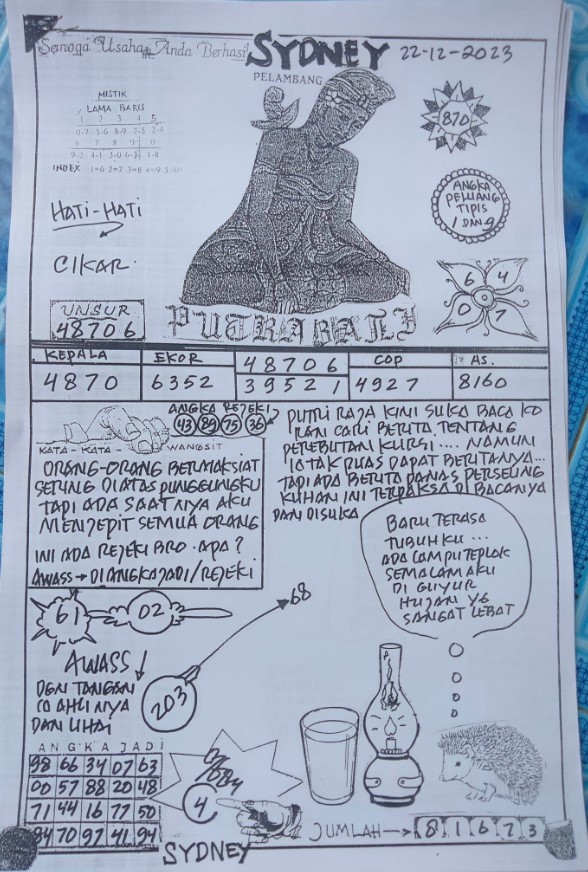 Semoga Usaha Anda Berhasil SYDNEY 22-12-2023
PELAMBANG
MISTIK
LAMA BARU
1 2 3 4 5
0-7 5-6 8-9 7-5 2-4
6 7 8 9 0
9-2 4-1 3-0 6-3 1-8
INDEX 1=6 2=7 3=8 4=9 5=0
870
HATI-HATI
ANGKA
PELUANG
TIPIS
1 DAN 9
CIKAR
6 4
0 7
UNSUR
48706
PUTRA BALI
KEPALA EKOR 48706 COP AS.
4870 6352 39521 4927 8160
ANGKA REJEKI
43 89 75 36
KATA - KATA - WANGSIT
ORANG-ORANG BERMAKSIAT
SERING DIATAS PUNGGUNGKU
TAPI ADA SAATNYA AKU
MENJEPIT SEMUA ORANG
INI ADA REJEKI BRO. APA?
AWASS → DI ANGKA JADI/REJEKI
PUTRI RAJA KINI SUKA BACA KO
RAN CARI BERITA TENTANG
PEREBUTAN KURSI .... NAMUN
IA TAK PUAS DAPAT BERITANYA...
TAPI ADA BERITA PANAS PERSELING
KUHAN INI TERPAKSA DI BACANYA
DAN DISUKA
BARU TERASA
TUBUHKU ...
ADA LAMPU TEPLOK
SEMALAM AKU
DI GUYUR
HUJAN YG
SANGAT LEBAT
61 02
68
AWASS
DGN TANGAN
AHLINYA
DAN LIHAI
203
ANGKA JADI
98 66 34 07 63
00 57 88 20 48
71 44 16 77 50
84 70 92 41 94
4
JUMLAH → 8 1 6 7 3
SYDNEY